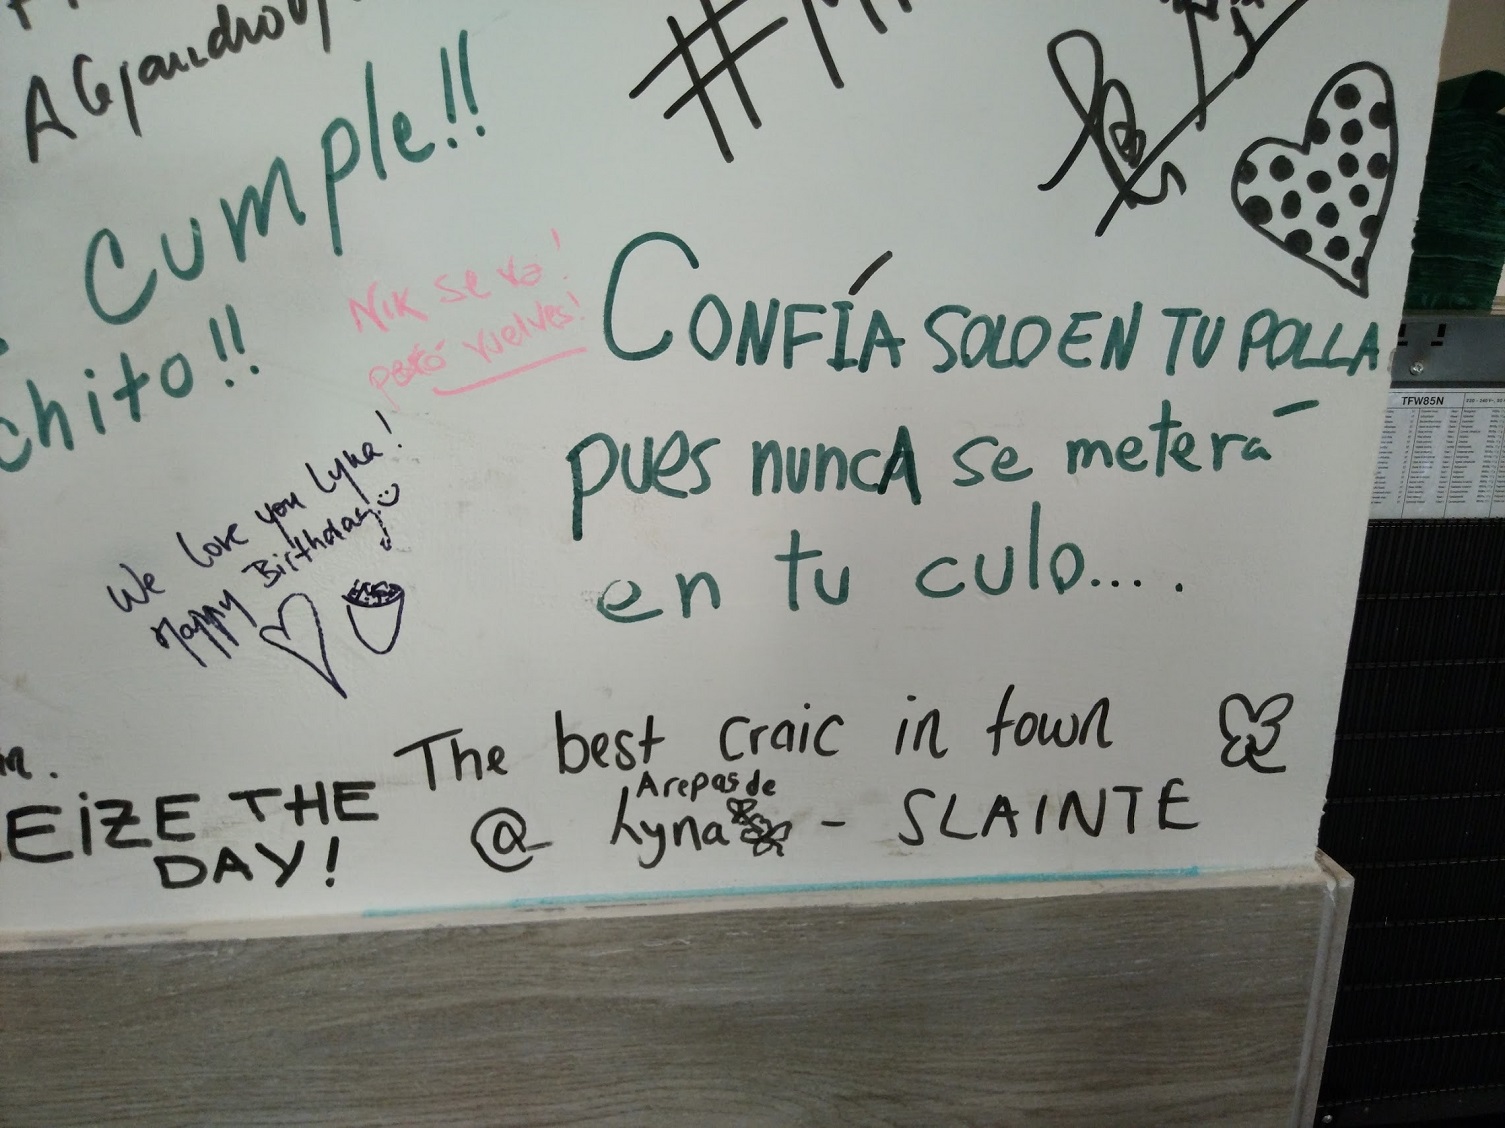 Alejandro
Cumple!!
chito!!
#
Nik se va!
pero vuelves!
CONFÍA SOLO EN TU POLLA
pues nunca se meterá
en tu culo....
We love you Lyna!
Happy Birthday
The best craic in town
@ Arepas de Lyna - SLAINTE
EiZE THE
DAY!
TFW85N